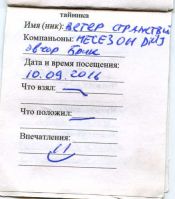 тайника
Имя (ник): ветер странствий
Компаньоны:
Дата и время посещения:
10.09.2016
Что взял:
Что положил:
Впечатления:
!!